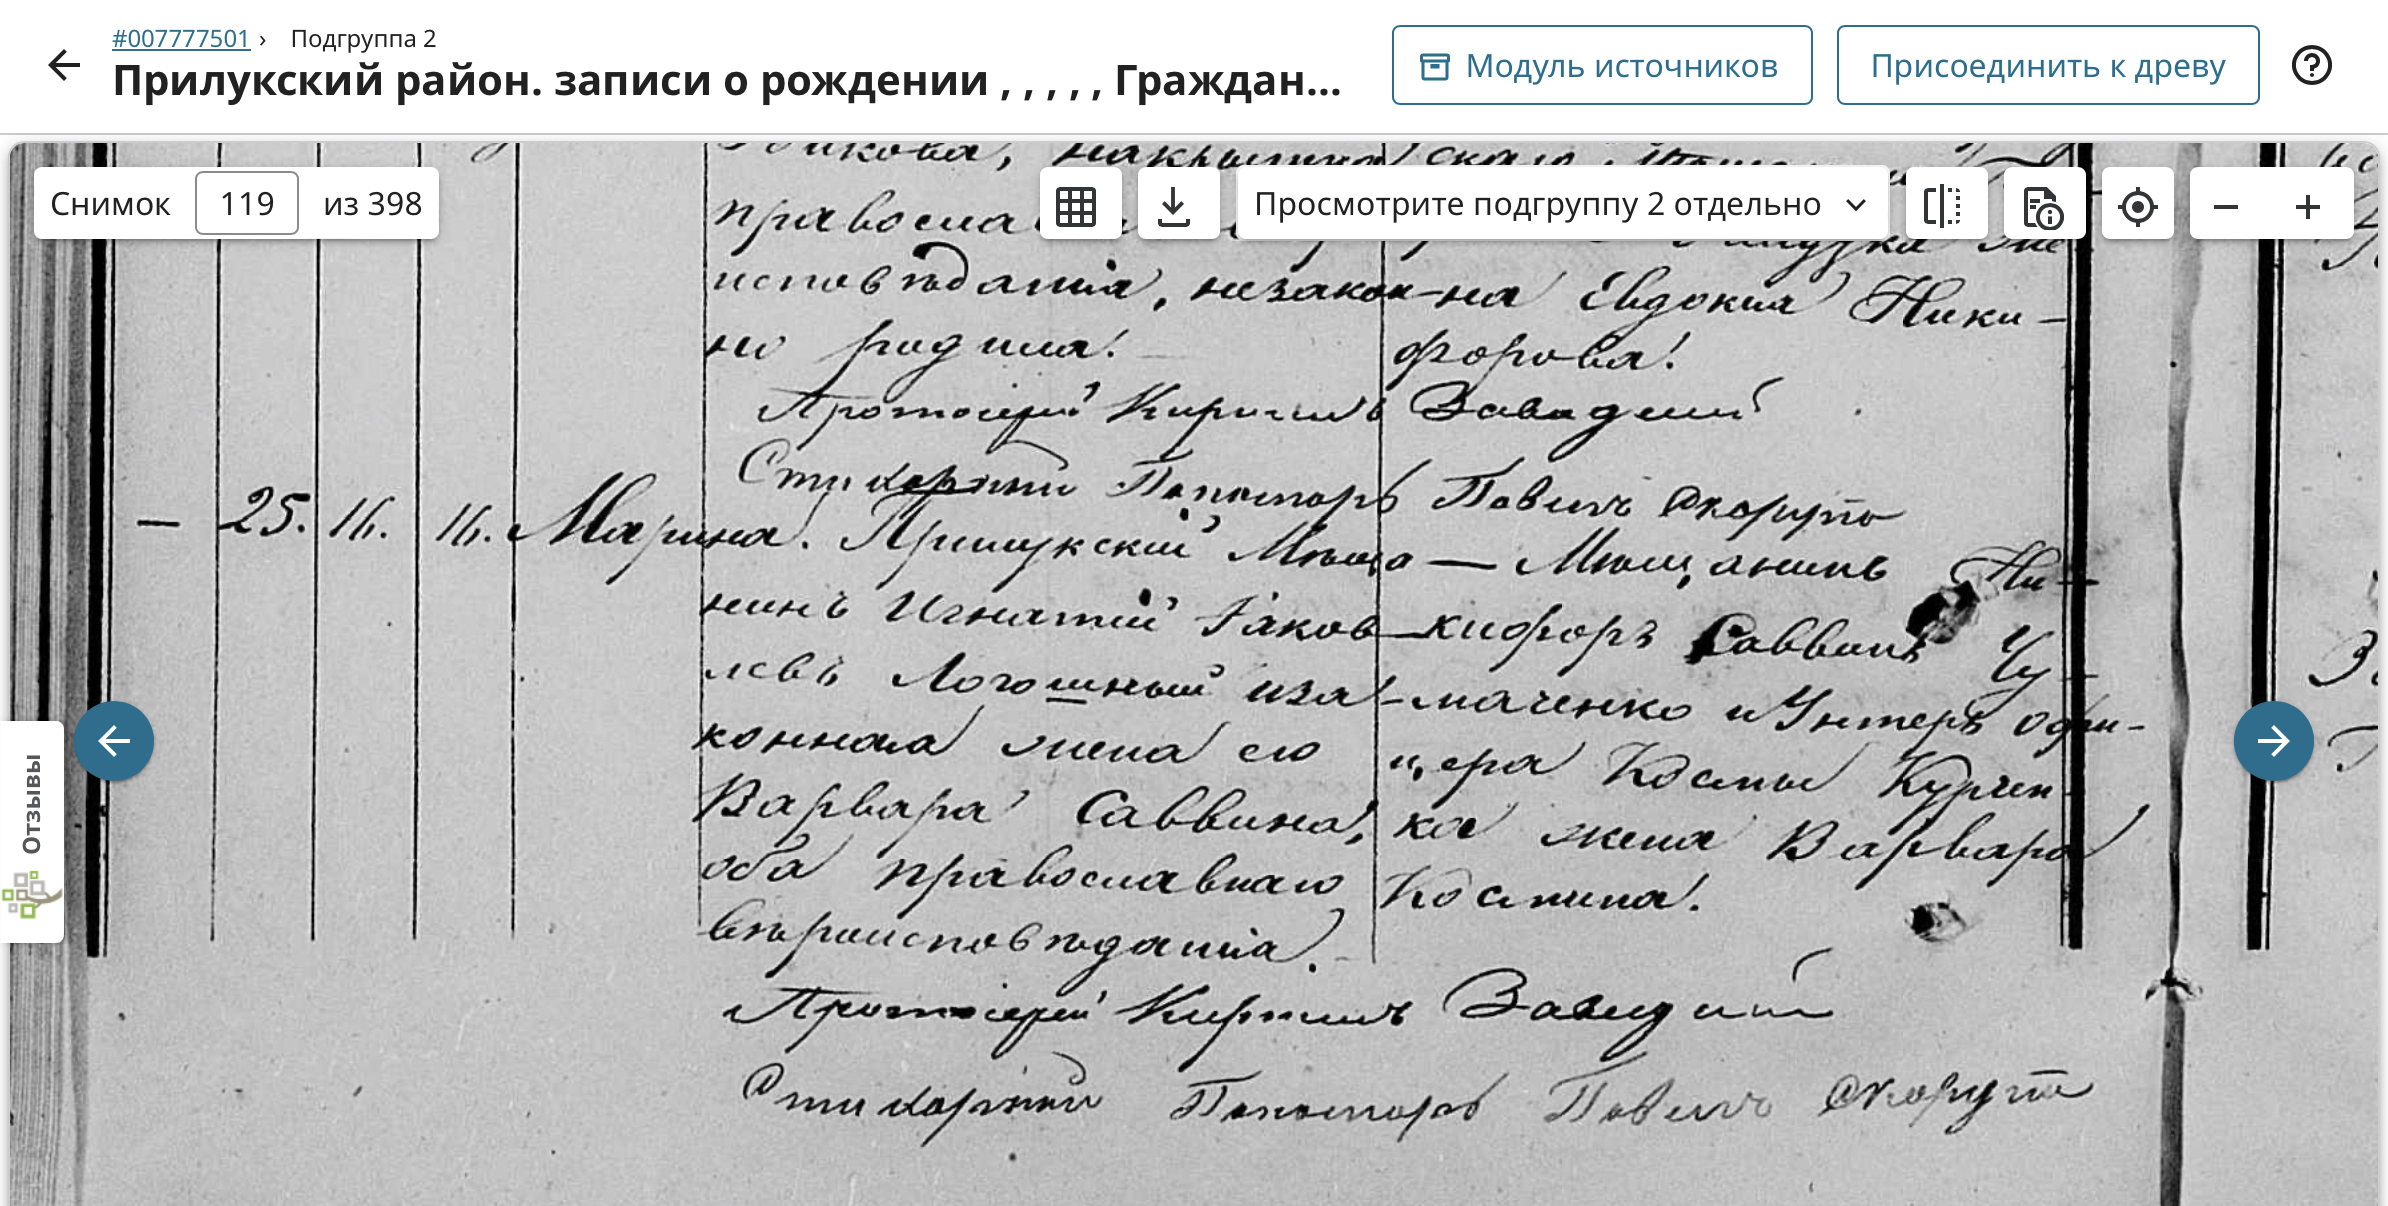 #007777501 › Подгруппа 2
Прилукский район. записи о рождении , , , , , Граждан...
Модуль источников
Присоединить к древу
Снимок 119 из 398
Просмотрите подгруппу 2 отдельно
Отзывы
православ
исповѣданія, незакон-
но родила.
на Евдокия Ники-
форова.
Протоіерей Кириллъ Завадский
Стихарный Пономарь Павелъ Скорупо
— 25. 16. 16. Марина.
Прилукскій Мѣща-
нинъ Игнатій Іаков-
левъ Логошный и за-
конная жена его
Варвара Саввина,
оба православнаго
вѣроисповѣданія.
Мѣщанинъ Ни-
кифоръ Саввинъ Чу-
маченко и Унтеръ офи-
цера Космы Курчен-
ка жена Варвара
Космина.
Протоіерей Кириллъ Завадский
Стихарный Пономарь Павелъ Скорупо